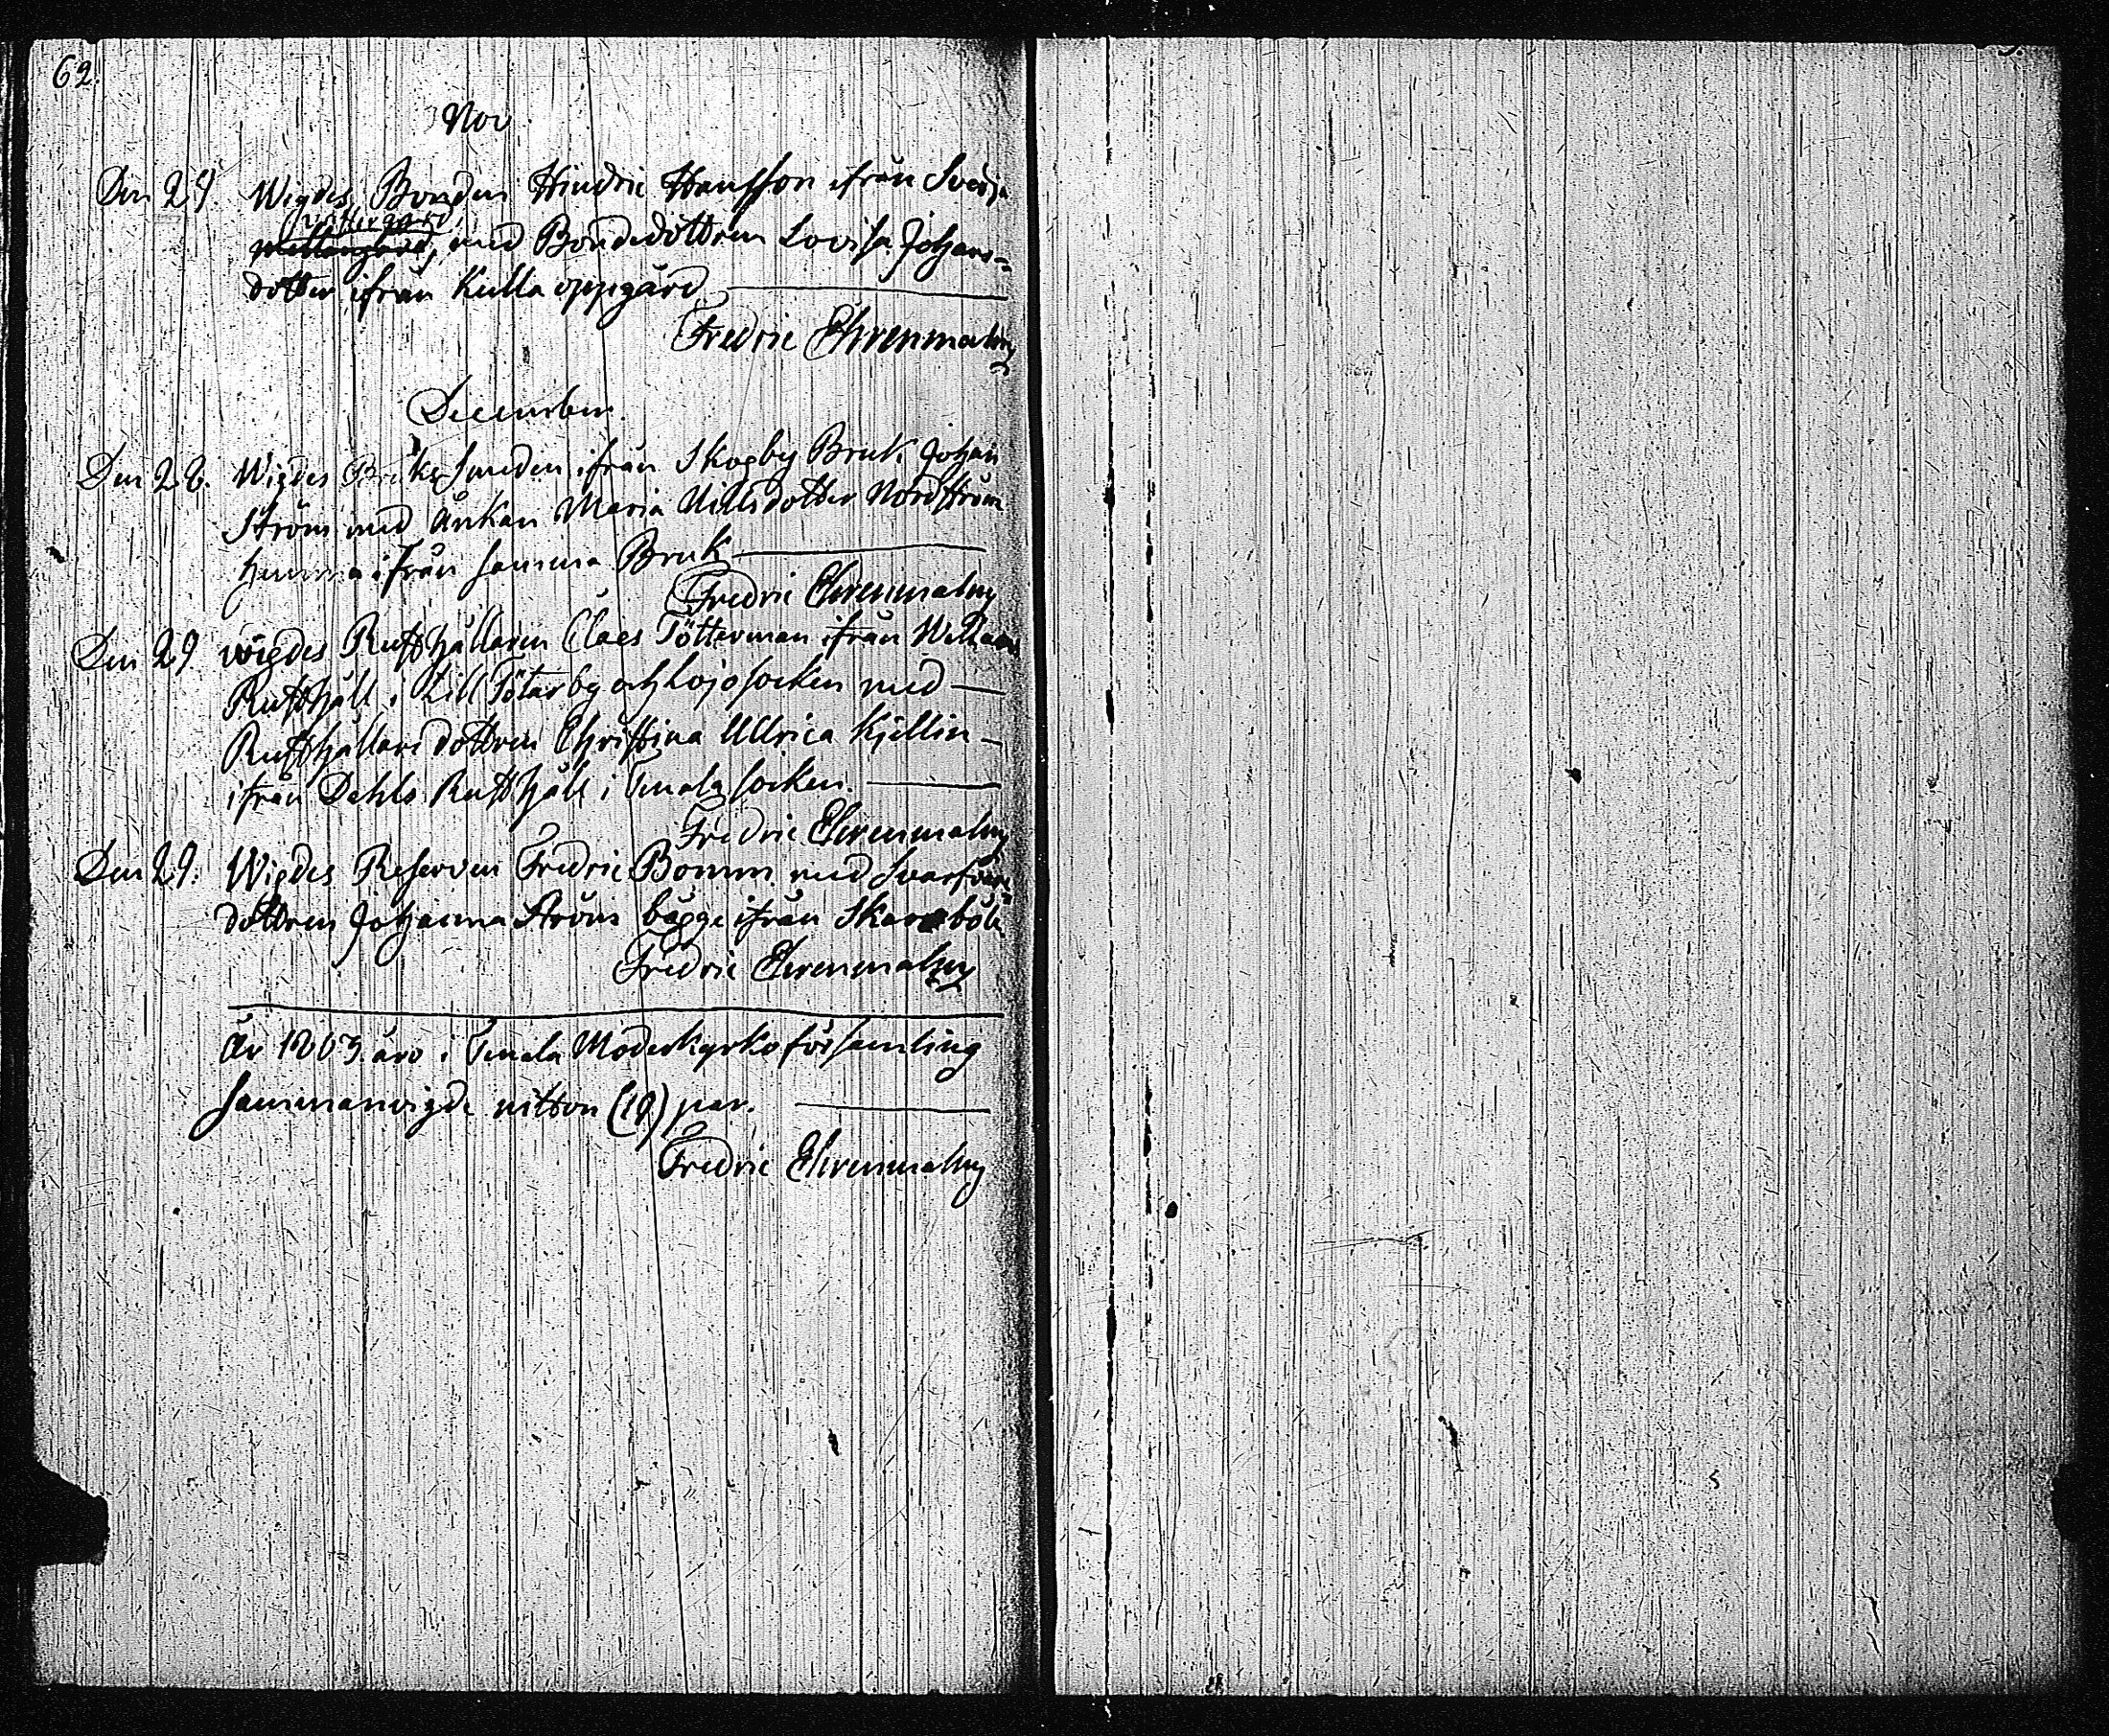 62.
Nov
Den 29. Wigdes Bonden Hindric Hansson ifrån Svedja
yttergård
mellangård, med Bondedottren Lovisa Johans-
dotter ifrån Kulla oppgård
Fredric Ehrenmalm
December.
Den 28. Wigdes Bruks Smeden ifrån Skogby Bruk Johan
Ström med Änkan Maria Nillsdotter Nordström
hemma ifrån samma Bruk
Fredric Ehrenmalm
Den 29 wigdes Rusthållaren Claes Tötterman ifrån
Rusthåll i Lill Tötar by och Lojo socken med
Rusthållare dottren Christina Ullrica Kjellin
ifrån Dahls Rusthåll i Tenala socken.
Fredric Ehrenmalm
Den 29. Wigdes Reserven Fredric Bomm med Svarfvare
dottren Johanna Ström bägge ifrån Skarsböle
Fredric Ehrenmalm
År 1803 äro i Tenala Moderkyrko församling
sammanvigde nitton (19) par.
Fredric Ehrenmalm